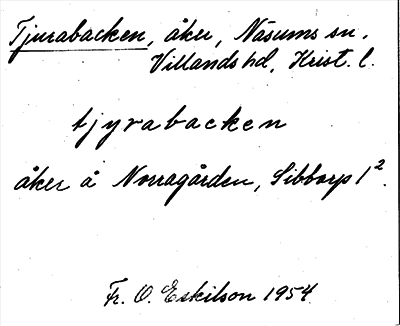 Tjurabacken, åker, Näsums sn.
Villands hd, Krist. l.
tjyrabacken
åker å Norragården, Sibborp 1².
Fr. O. Eskilson 1954.